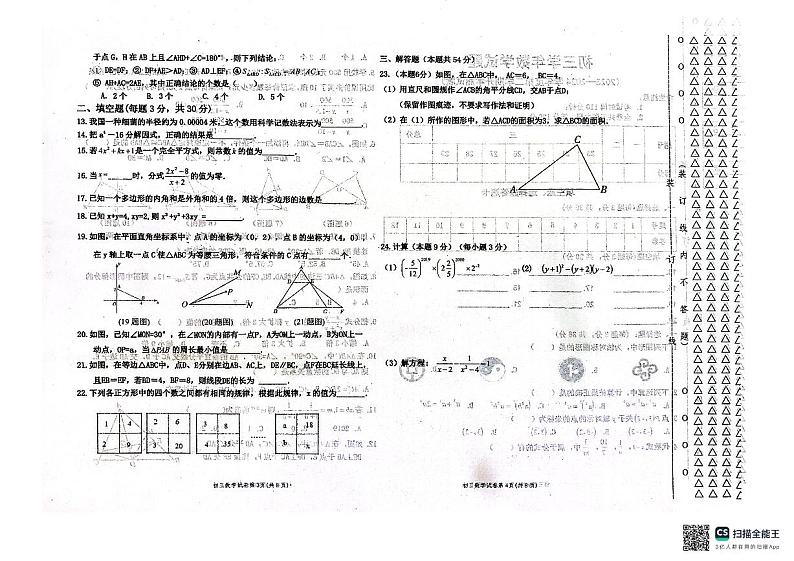 于点G，H在AB上且∠AHD+∠C=180°，则下列结论：
① DE=DF；② DF+AE>AD；③ AD⊥EF；
⑤ AH+AC=2AE，其中正确结论的个数是（
A. 2个 B. 3个 C. 4个 D. 5个
二、填空题（每题3分，共30分）
13. 我国一种细菌的半径约为0.00004米，这个数用科学记数法表示为
14. 把a⁴－16分解因式，正确的结果是
15. 若4x²+kx+1是一个完全平方式，则常数k的值为
16. 当x=____时，分式(2x²-8)/(x+2)的值为零.
17. 已知一个多边形的内角和是外角和的4倍，则这个多边形的边数是
18. 已知x+y=4, xy=2, 则x²+y²+3xy =
19. 如图，在平面直角坐标系中，点A的坐标为（0，2），点B的坐标为（4，0）
在y轴上取一点C使△ABC为等腰三角形，符合条件的C点有____个.
(19题图) (20题图) (21题图)
20. 如图，已知∠MON=30°，在∠MON的内部有一点P，A为OM上一动点，B为ON上一
动点，OP=a，当△PAB的周长最小值是
21. 如图，在等边△ABC中，点D、E分别在边AB、AC上，DE//BC，点F在BC延长线上，
且EB=EF，若BD=4，BF=8，则线段DE的长为
22. 下列各正方形中的四个数之间都有相同的规律，根据此规律，x的值为
1 4 2 6 3 8 a 18
2 9 3 20 4 35 b x
初三数学试卷第3页(共8页)
三、解答题（本题共54分）
23.（本题6分）如图，在△ABC中，AC=6，BC=4.
（1）用直尺和圆规作∠ACB的角平分线CD，交AB于点D；
（保留作图痕迹，不要求写作法和证明）
（2）在（1）所作的图形中，若△ACD的面积为3，求△BCD的面积.
C
A B
24. 计算（本题9分）（每小题3分）
（1）(-5/12)²⁰¹⁹×(2 2/5)²⁰²⁰×2⁻²
（2）(y+1)²-(y+2)(y-2)
（3）解方程：x/(x-2) - 1/(x²-4) =1
初三数学试卷第4页(共8页)
装 订 线 内 不 答 题
装 订 线
CS 扫描全能王
3亿人都在用的扫描App